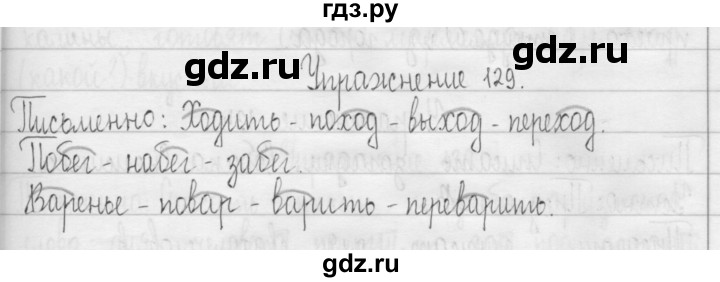 гдз.ру
gdz.ru gdz.ru
Упражнение 129.
Письменно: Ходить - поход - выход - переход.
Побег - набег - забег.
Варенье - повар - варить - переварить.
gdz.ru gdz.ru